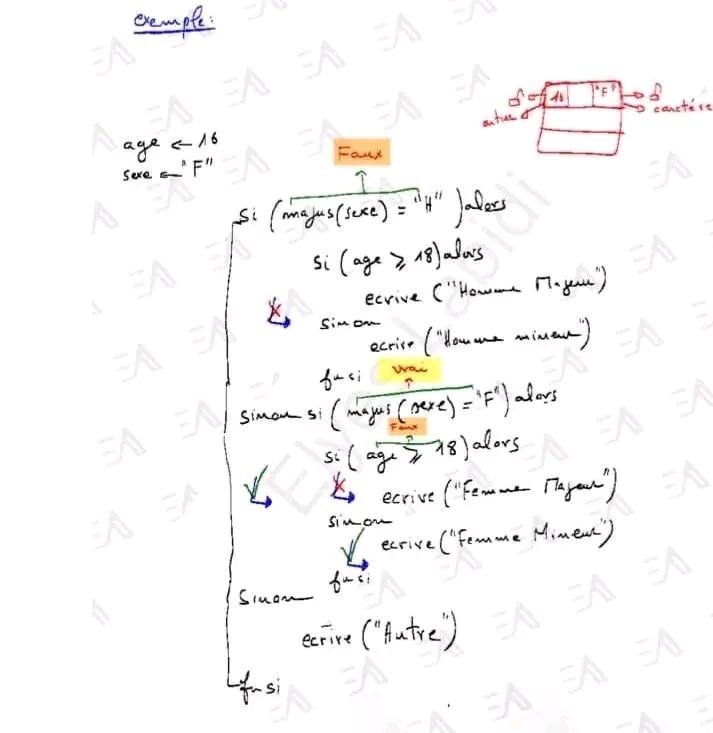 exemple:
age ← 16
sexe ← "F"
16 "F"
entier caractère
Faux
Si (majus(sexe) = "H") alors
si (age ≥ 18) alors
ecrire ("Homme Majeur")
sinon
ecrire ("Homme mineur")
fin si
vrai
Sinon si (majus (sexe) = "F") alors
Faux
si (age ≥ 18) alors
ecrire ("Femme Majeur")
sinon
ecrire ("Femme Mineur")
fin si
Sinon
ecrire ("Autre")
fin si